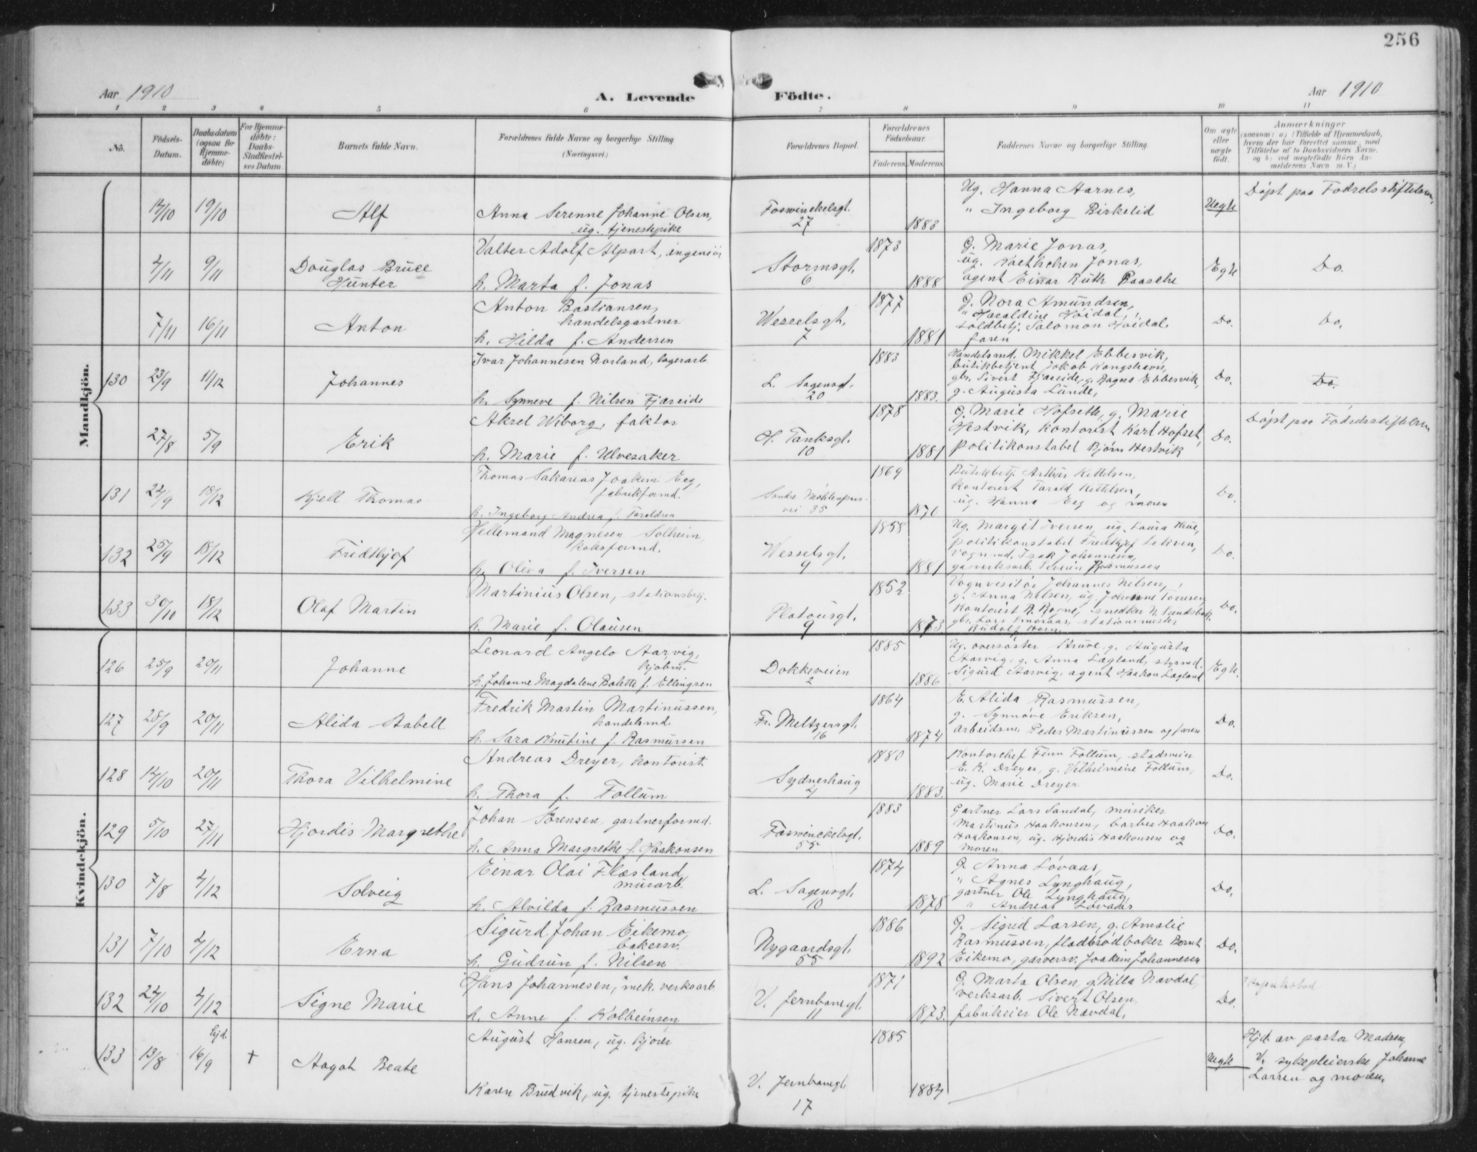 256
Aar 1910
A. Levende
Födte.
Aar 1910
1 2 3 4 5 6 7 8 9 10 11
No.
Födsels-Datum.
Daabsdatum (ogsaa for Hjemmedöbte)
For Hjemmedöbte: Daabs-Stadfæstelses Datum.
Barnets fulde Navn.
Forældrenes fulde Navne og borgerlige Stilling
(Næringsvei)
Forældrenes Bopæl.
Forældrenes Födselsaar.
Faderens.
Moderens.
Faddernes Navne og borgerlige Stilling
Om ægte eller uægte födt.
Anmærkninger
Mandkjön.
14/10 19/10 Alf
Anna Serenne Johanne Olsen,
ug. tjenestpike
Foswinckelsgt.
27
1888
Ug. Hanna Aarnes,
" Ingeborg Birkelid
Uegte
Döpt paa Födselsstiftelsen,
4/11 9/11 Douglas Bruce
Hunter
Valter Adolf Alpart, ingeniör
h. Marta f. Jonas
Stormsgt.
6
1873
1888
G. Marie Jonas,
ug. Jonas,
agent Einar Ruth Paasche
Egte
Do.
7/11 16/11 Anton
Anton Bastiansen,
handelsgartner
h. Hilda f. Andersen
Wesselsgt.
7
1877
1881
G. Nora Amundsen,
" Haraldine Höidal,
toldbetj. Salomon Höidal,
faren
Do.
Do.
130 23/9 11/12 Johannes
Ivar Johannesen Norland, lagerarb.
h. Synneve f. Nilsen Fjæreide
L. Sagensgt.
20
1883
1883.
Handelsmd. Mikkel Ebbesvik,
butikbetjent Jakob Kongshavn,
gbr. Sivert Fjæreide, g. Ragna Ebbesvik,
g. Augusta Lunde,
Do.
Do.
27/8 5/9 Erik
Aksel Wiborg, faktor
h. Marie f. Ulvesaker
H. Tanksgt.
10
1878
1881
G. Marie Hofseth, g. Marie
Hestvik, kontorist Karl Hofset,
politikonstabel Björn Hestvik
Do.
Döpt paa Födselsstiftelsen
131 24/9 18/12 Kjell Thomas
Thomas Sakarias Joakim Eeg,
fabrikformd.
h. Ingeborg Andrea f. Taraldsen
Möhlenpris-
vei 35
1869
1871
Butikbetj. Arthur Kittelsen,
kontorist Harald Kittelsen,
ug. Hanna Eeg og moren
Do.
132 25/9 18/12 Fridthjof
Magnussen Solheim,
h. Oliva f. Iversen
Wesselsgt.
9
1858
1881
Ug. Margit Iversen, ug. Lovisa
politikonstabel Fredthjof
vognmd. Isak Johannesen,
gasverksarb. Severin Rasmussen
Do.
133 30/10 18/12 Olaf Martin
Martinius Olsen, stationsbetj.
h. Marie f. Olausen
Platousgt.
9
1852
1873
Vognvisitör Johannes Nilsen,
g. Anna Nilsen, ug. Johanne
kontorist
stationsmester
Do.
Kvindekjön.
126 25/9 20/11 Johanne
Leonard Angelo Aarvig,
kjöbm.
h. Johanne Magdalene Bolette f. Ellingsen
Dokkeveien
2
1885
1886
Ug. oversöster Struve, g. Augusta
Aarvig, g. Anna Lægland, styrmd.
Sigurd Aarvig, agent Haakon Lægland
Egte.
127 25/9 20/11 Alida Stabell
Fredrik Martin Martinussen,
handelsmd.
h. Sara Knutine f. Rasmussen
Fr. Meltzersgt.
16
1864
1874
E. Alida Rasmussen,
g. Synnöve Eriksen,
arbeidsm. Peder Martinussen og faren
Do.
128 14/10 20/11 Thora Vilhelmine
Andreas Dreyer, kontorist
h. Thora f. Follum
Sydneshaug
4
1880
1883.
Kontorchef Finn Follum, stadsmæir
E. K. Dreyer, g. Vilhelmine Follum,
ug. Marie Dreyer
Do.
129 5/10 27/11 Hjordis Margrethe
Johan Sörensen, gartnerformd.
h. Anna Margrethe f. Haakonsen
Foswinckelsgt.
55
1883
1889
Gartner Lars Sandal, musiker
Martinus Haakonsen, barber Haakon
Haakonsen, ug. Hjördis Haakonsen og
moren
Do.
130 7/8 4/12 Solveig
Einar Olai Flæsland,
murarb.
h. Alvilda f. Rasmussen
L. Sagensgt.
10
1874
1878
G. Anna Lövaas,
" Agnes Lynghaug,
gartner Ole Lynghaug,
" Andreas Lövaas
Do.
131 7/10 4/12 Erna
Sigurd Johan Eikemo,
bakersv.
h. Gudrun f. Nilsen
Nygaardsgt.
55
1886
1892
G. Sigrid Larsen, g. Amalie
Rasmussen, fladbrödbaker Bernt
Eikemo, garversv. Joakim Johannesen
Do.
132 24/10 4/12 Signe Marie
Hans Johannesen, mek. verksarb.
h. Anne f. Kolbeinsen
V. Jernbanegt.
11
1871
1873
G. Marta Olsen, g. Milla Navdal,
verksarb. Sivert Olsen,
fabrikeier Ole Navdal,
Do.
133 13/8 Hjd. 16/9 + Aagot Beate
August Hansen, ug. Bjorør
Karen Brudvik, ug. tjenestepike
V. Jernbanegt.
17
1885
1884
Uegte
Hjd. av pastor Madsen,
V. sykepleierske Johanne
Larsen og moren,